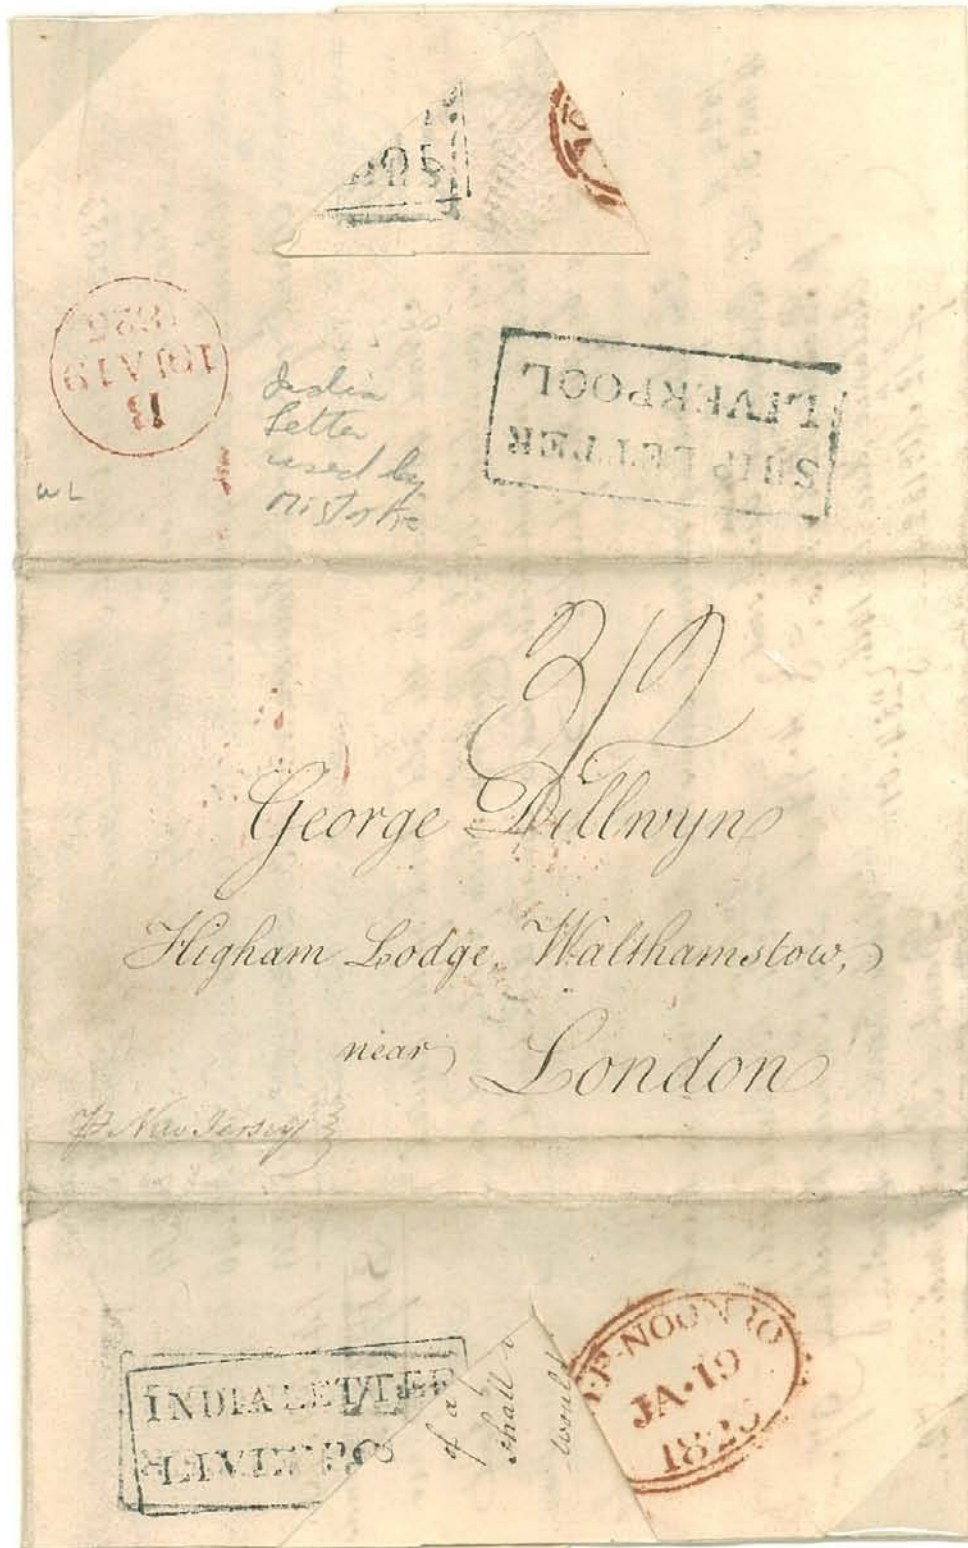 B
19 JA 19
1825
India
Letter
used by
mistake
WL
SHIP LETTER
LIVERPOOL
3/2
George Dillwyn
Higham Lodge, Walthamstow,
near London
Pr New Jersey
INDIA LETTER
LIVERPO
of a
shall
would
NOON
JA·19
182